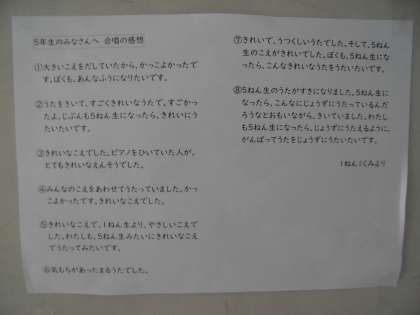 5年生のみなさんへ 合唱の感想
①大きいこえをだしていたから、かっこよかったで
す。ぼくも、あんなふうになりたいです。
②うたをきいて、すごくきれいなうたで、すごかっ
たよ。じぶんも5ねん生になったら、きれいにう
たいたいです。
③きれいなこえでした。ピアノをひいていた人が、
とてもきれいなえんそうでした。
④みんなのこえをあわせてうたっていました。かっ
こよかったです。きれいなこえでした。
⑤きれいなこえで、1ねん生より、やさしいこえで
した。わたしも、5ねん生みたいにきれいなこえ
でうたってみたいです。
⑥気もちがあったまるうたでした。
⑦きれいで、うつくしいうたでした。そして、5ねん
生のこえがきれいでした。ぼくも、5ねん生にな
ったら、こんなきれいなうたをうたいたいです。
⑧5ねん生のうたがすきになりました。5ねん生に
なったら、こんなにじょうずにうたっているんだ
ろうなとおもいながら、きいていました。わたし
も5ねん生になったら、じょうずにうたえるように、
がんばってうたをじょうずにうたいたいです。
1ねん1くみより